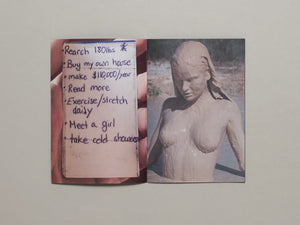 • Reach 180lbs *
• Buy my own house
• make $110,000/year
• Read more
• Exercise/stretch
daily
• Meet a girl
• take cold showers